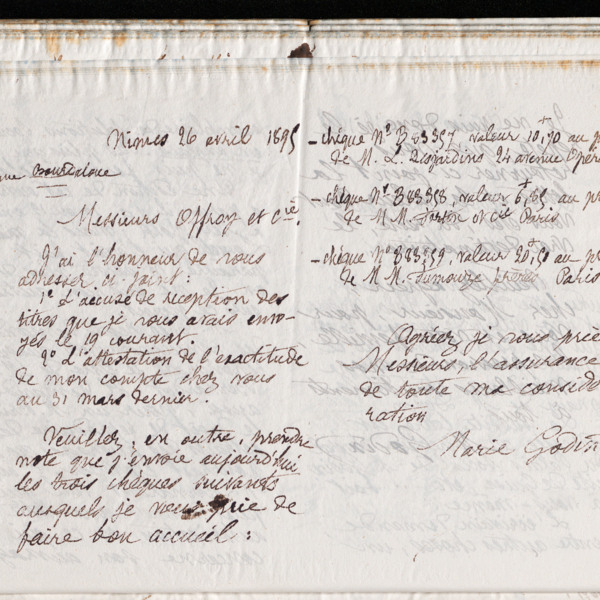 Nimes 26 avril 1895
Bourdaloue
Messieurs Offroy et Cie
J'ai l'honneur de vous
adresser ci joint:
1º L'accusé de réception des
titres que je vous avais envo-
yés le 19 courant.
2º L'attestation de l'exactitude
de mon compte chez vous
au 31 mars dernier.
Veuillez, en outre, prendre
note que j'envoie aujourd'hui
les trois chèques suivants
auxquels je vous prie de
faire bon accueil:
- chèque Nº 383357, valeur 10,70 au
de M. L. Desjardins 24 avenue Opéra
- chèque Nº 383358, valeur 6,65 au
de MM. et Cie Paris
- chèque Nº 383359, valeur 20,50 au
de MM. Dumoury frères Paris
Agréez je vous prie
Messieurs, l'assurance
de toute ma considé
ration
Marie Godin